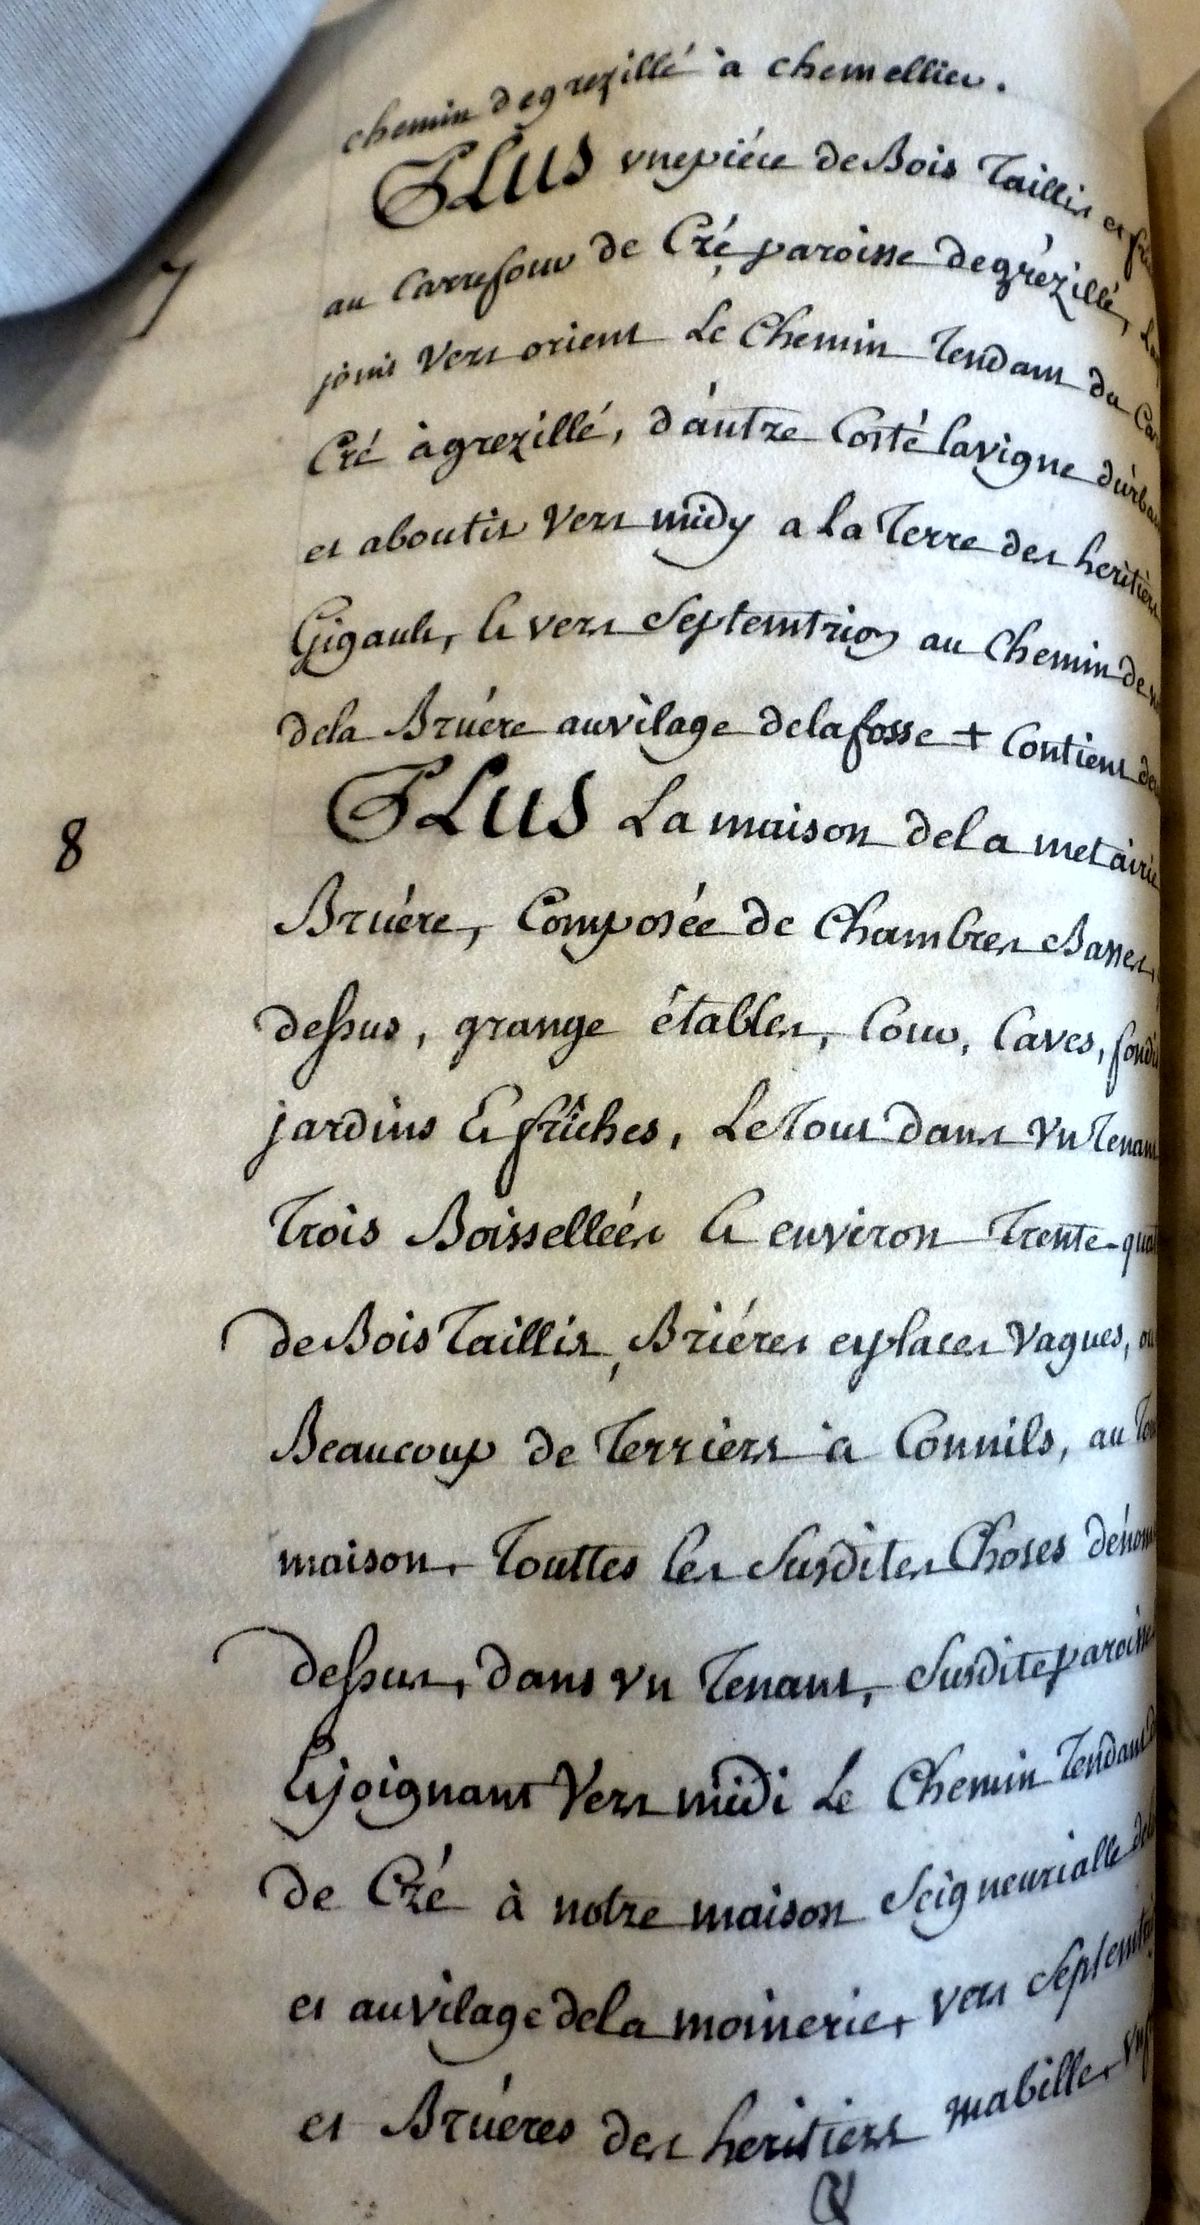 chemin degrezillé à chemellier.
7
PLUS vnepiéce deBois Taillis et
au Carrefour de Cré, paroisse degrézillé,
joint Vers orient Le Chemin Tendant du
Cré àgrezillé, d'áutre Costé lavigne
et aboutit Vers midy a La Terre des heritiers
Gigault, & vers Septemtrion au Chemin de
dela Bruére auvilage delafosse + Contient
8
PLUS La maison dela metairie
Bruére, Composée de Chambres Basses,
dessus, grange étables, Cour, Caves,
jardins & friches, LeTout Dans vn Tenant
Trois Boisselleés & environ Trente-
deBois Taillis, Briéres etplaces Vagues,
Beaucoup de Terriers à Connils, au
maison. Touttes les Susdites Choses
dessus, Dans vn Tenant, Susdite paroisse
&joignant Vers midi Le Chemin Tendant
de Cré à notre maison Seigneurialle
et auvilage dela moinerie, vers
et Bruéres des heritiers mabille,